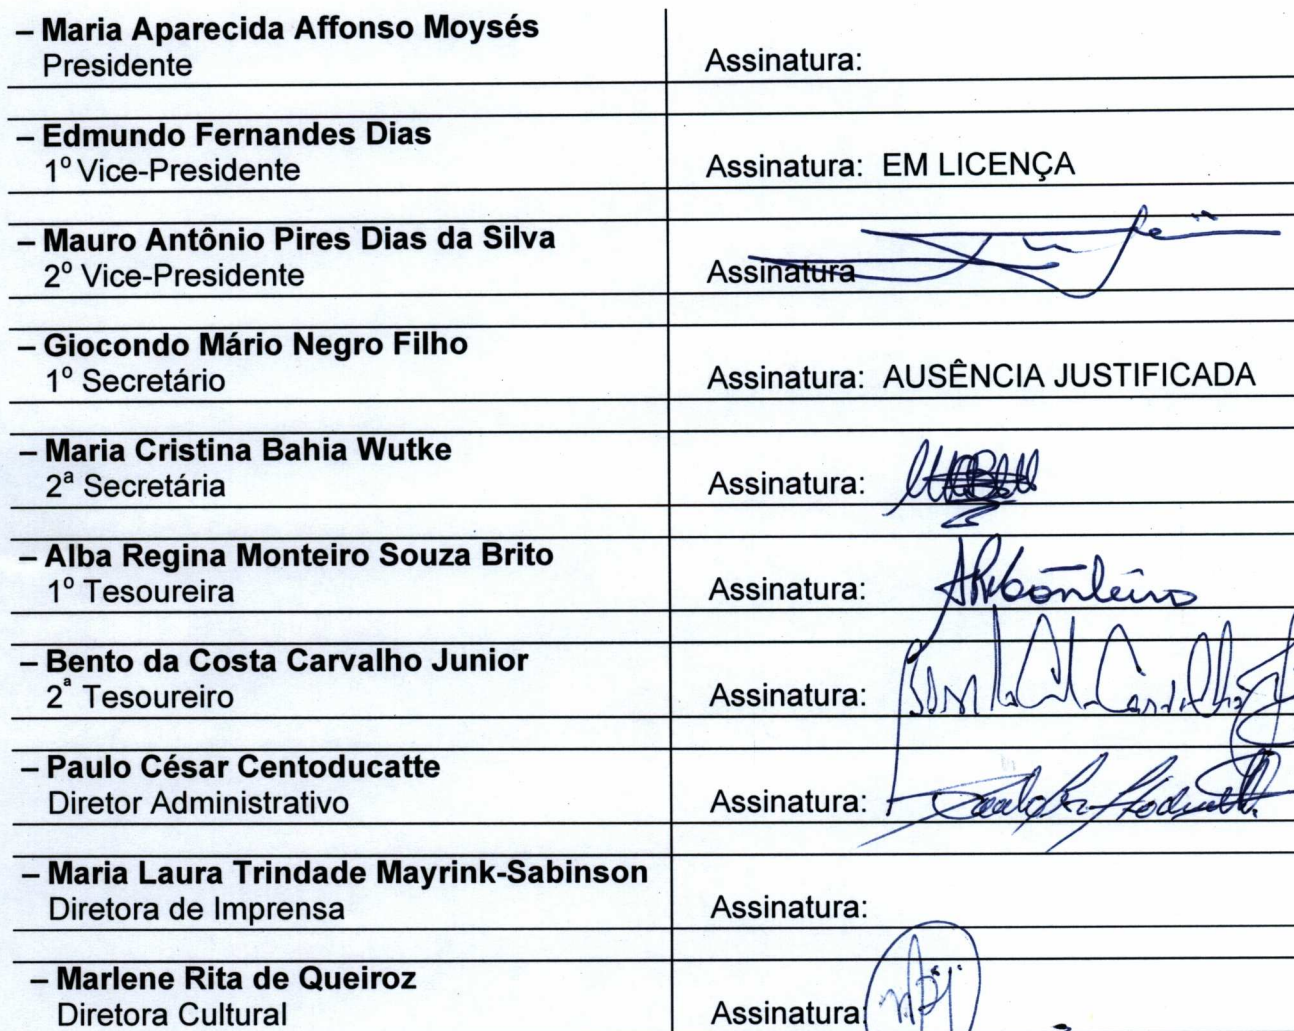 – Maria Aparecida Affonso Moysés
Presidente
Assinatura:
– Edmundo Fernandes Dias
1º Vice-Presidente
Assinatura: EM LICENÇA
– Mauro Antônio Pires Dias da Silva
2º Vice-Presidente
Assinatura
– Giocondo Mário Negro Filho
1º Secretário
Assinatura: AUSÊNCIA JUSTIFICADA
– Maria Cristina Bahia Wutke
2ª Secretária
Assinatura:
– Alba Regina Monteiro Souza Brito
1º Tesoureira
Assinatura:
– Bento da Costa Carvalho Junior
2ª Tesoureiro
Assinatura:
– Paulo César Centoducatte
Diretor Administrativo
Assinatura:
– Maria Laura Trindade Mayrink-Sabinson
Diretora de Imprensa
Assinatura:
– Marlene Rita de Queiroz
Diretora Cultural
Assinatura: